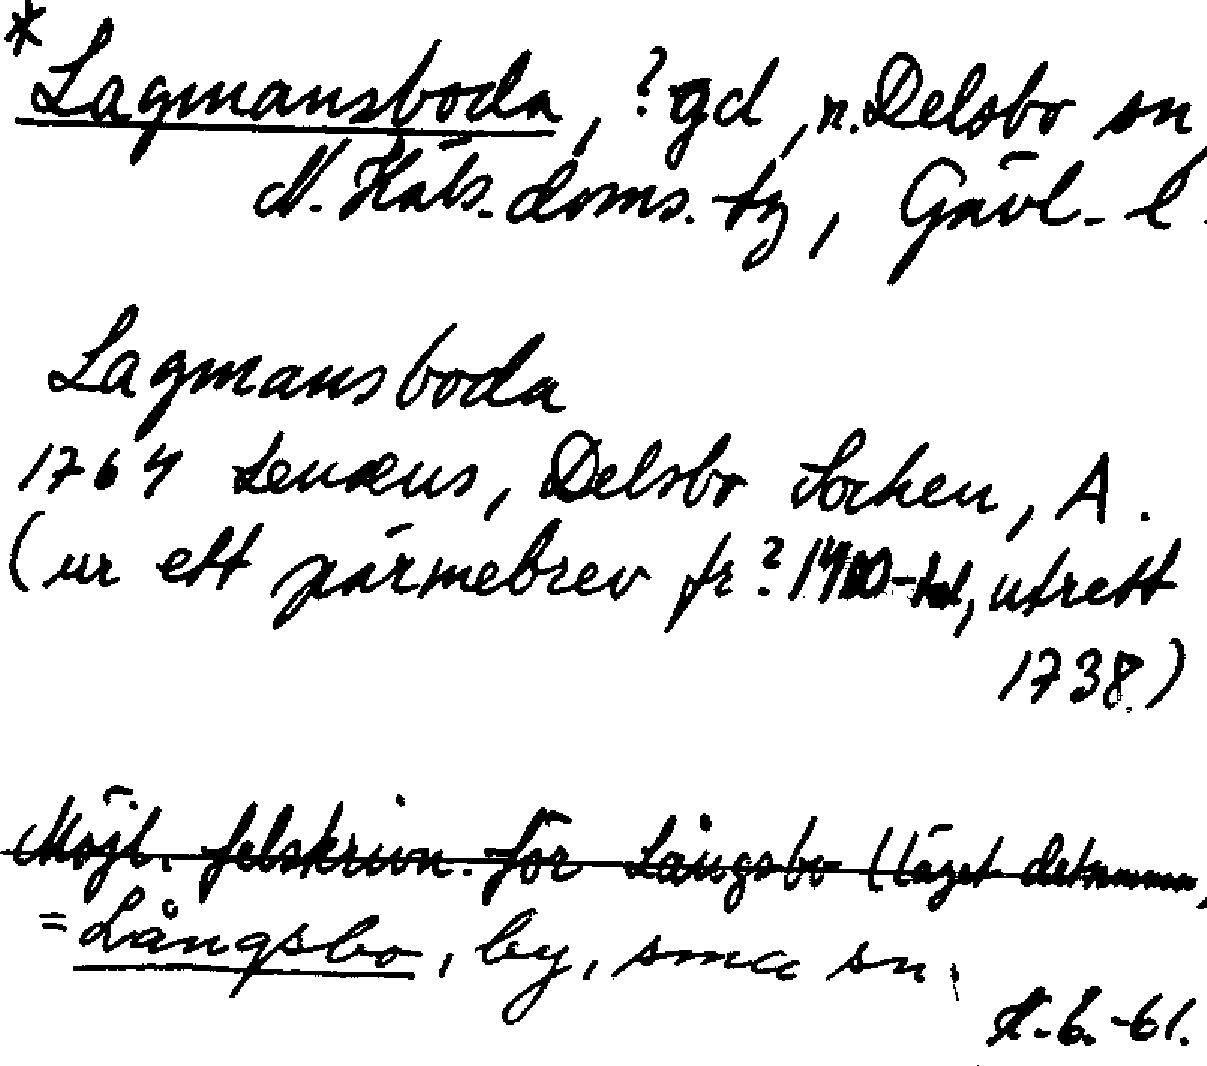 *
Lagmansboda, ?gd, n. Delsbo sn,
N. Häls. doms. tg, Gävl. l.
Lagmansboda
1764 Lenæus, Delsbo Socken, A.
(ur ett pärmebrev fr ? 1400-tal, utrett
1738.)
Möjl. felskrivn. för Långsbo (läget detsamma,
= Långsbo, by, sma sn.
-6.-61.